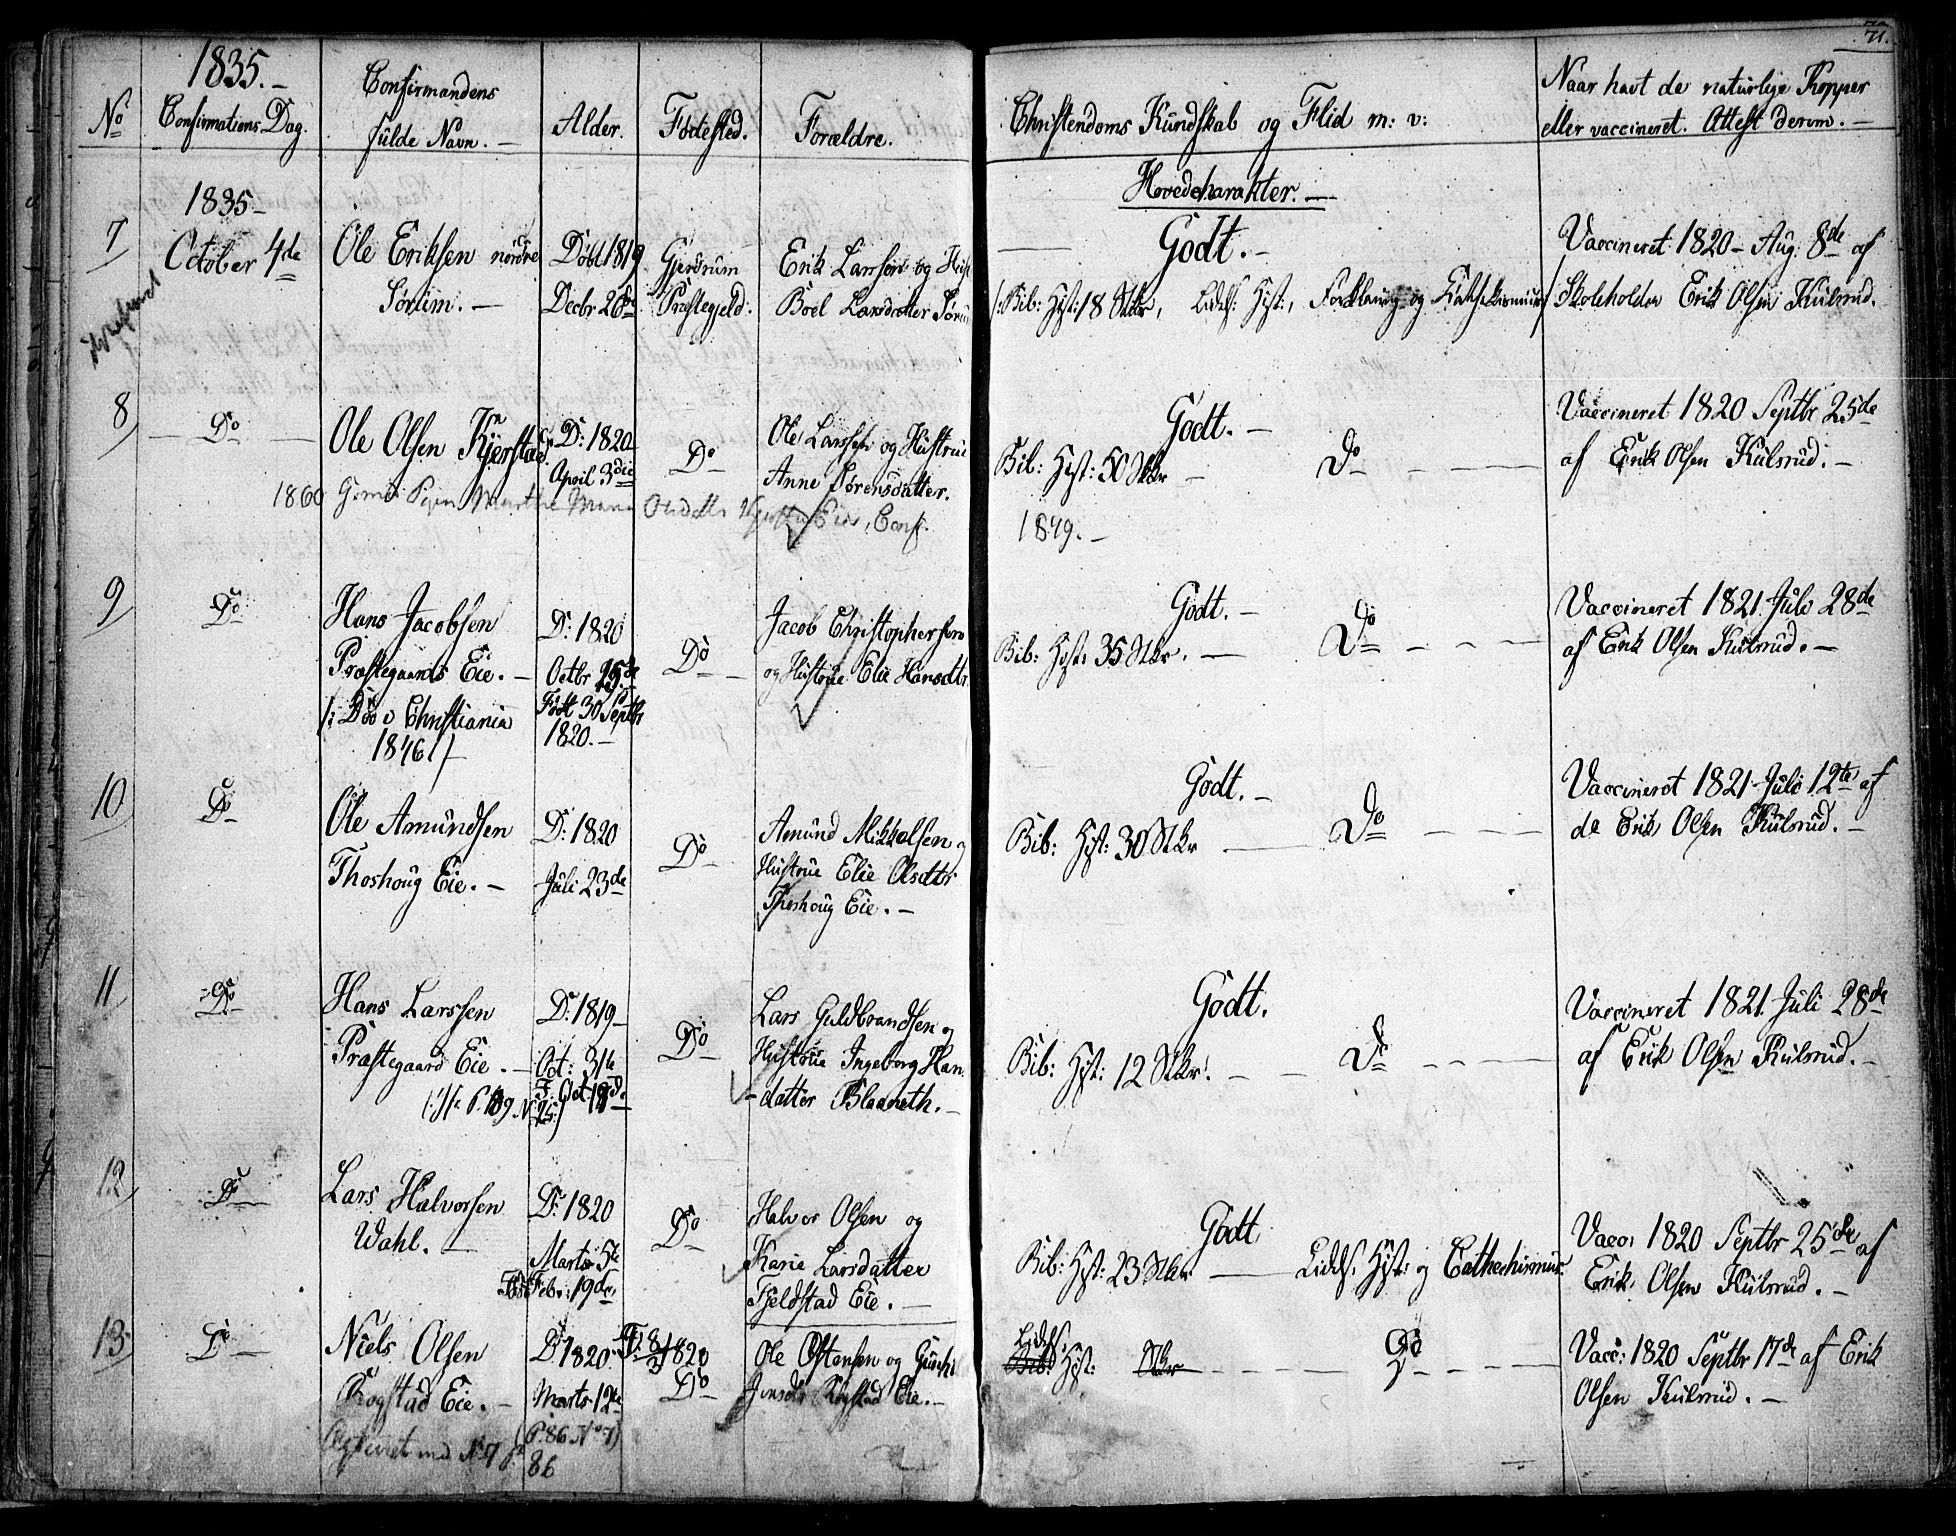 71.
1835.-
No
Confirmations Dag.
Confirmandens
fulde Navn. -
Alder.
Fødested.
Forældre.
Christendoms Kundskab og Flid m: v:
Naar havt de naturlige Kopper
eller vaccineret. Attest derom. -
Hovedcharakter. -
1835-
7
October 4de
Ole Eriksen nordre
Sørum. -
Døbt 1819
Decbr 26de
Gjerdrum
Præstegjeld.
Erik Larssen og Hust
Boel Larsdatter Sørum
Godt. -
/: Bib: Hist: 18 Stkr, Lidds: Hist:, Forklaring og Cathekismus/
Vaccineret 1820 - Aug. 8de af
Skoleholder Erik Olsen Kulsrud.
8
Do
Ole Olsen Kjerstad
D: 1820
April 3die
Do
Ole Larssen og Hustrue
Anne Sørensdatter.
Godt. -
Bib: Hist: 50 Stkr - Do
Vaccineret 1820 Septbr 25de
af Erik Olsen Kulsrud. -
1860 Pigen Marthe Maria Eie, Conf.
1849. -
9
Do
Hans Jacobsen
Præstegaards Eie. -
/: Døo i Christiania
1846 :/
D: 1820
Octbr 15de
Født 30 Septbr
1820. -
Do
Jacob Christophersen
og Hustrue Elie Hansdtr.
Godt. -
Bib: Hist: 35 Stkr. - Do
Vaccineret 1821 Juli 28de
af Erik Olsen Kulsrud. -
10
Do
Ole Amundsen
Thoshoug Eie. -
D: 1820
Juli 23de
Do
Amund Mikkelsen og
Hustrue Elie Olsdtr
Thoshoug Eie. -
Godt. -
Bib: Hist: 30 Stkr - Do
Vaccineret 1821 Juli 12te af
de Erik Olsen Kulsrud. -
11
Do
Hans Larssen
Præstegaard Eie. -
P. 109 No 25:)
D: 1819
Oct: 31te
F. Oct 18de
Do
Lars Guldbrandsen og
Hustrue Ingeborg Han
datter Blaaneth. -
Godt.
Bib: Hist: 12 Stkr. - Do
Vaccineret 1821 Juli 28de
af Erik Olsen Kulsrud. -
12
Do
Lars Halvorsen
Wahl. -
D: 1820
Marts 5te
Febr: 19de
Do
Halvor Olsen og
Karie Larsdatter
Fjeldstad Eie. -
Godt
Bib: Hist: 23 Stkr - Lidds: Hist: og Cathechismus
Vacc: 1820 Septbr 25de af
Erik Olsen Kulsrud. -
13
Do
Niels Olsen
Rogstad Eie. -
D: 1820
Marts 12te
(P. 86 No 7)
F: 8/3 1820
Do
Ole Ostensen og Gunhi
Jensdtr Rogstad Eie. -
Lidds:
Bib: Hist: Stkr - Do
Vacc: 1820 Septbr 17de af Erik
Olsen Kulsrud. -
No 7 P.
86